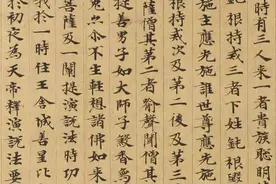 時有三人來一者貴族聰明
鈍根持戒三者下姓鈍根毀
是施主應先施誰世尊應先施
根持戒次及第二後及第三
薩僧其第一者喻聲聞僧其
提善男子如大師子殺香象
兔亦尒不生輕想諸佛如來
菩薩及一闡提演說法時功
我於一時住王舍城善星比
於初夜為天帝釋演說法要